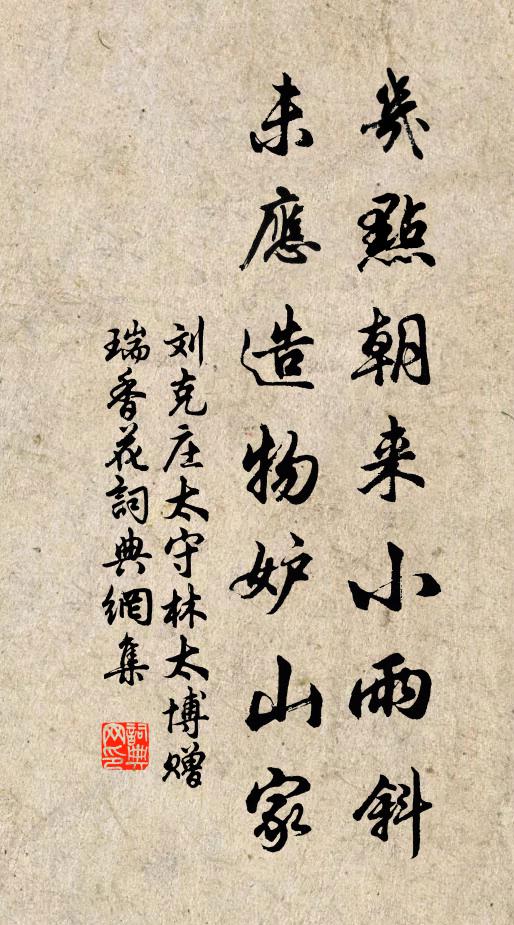 幾點朝来小雨斜
未應造物妒山家
刘克庄太守林太博赠
瑞香花詞典網集
詞典网印